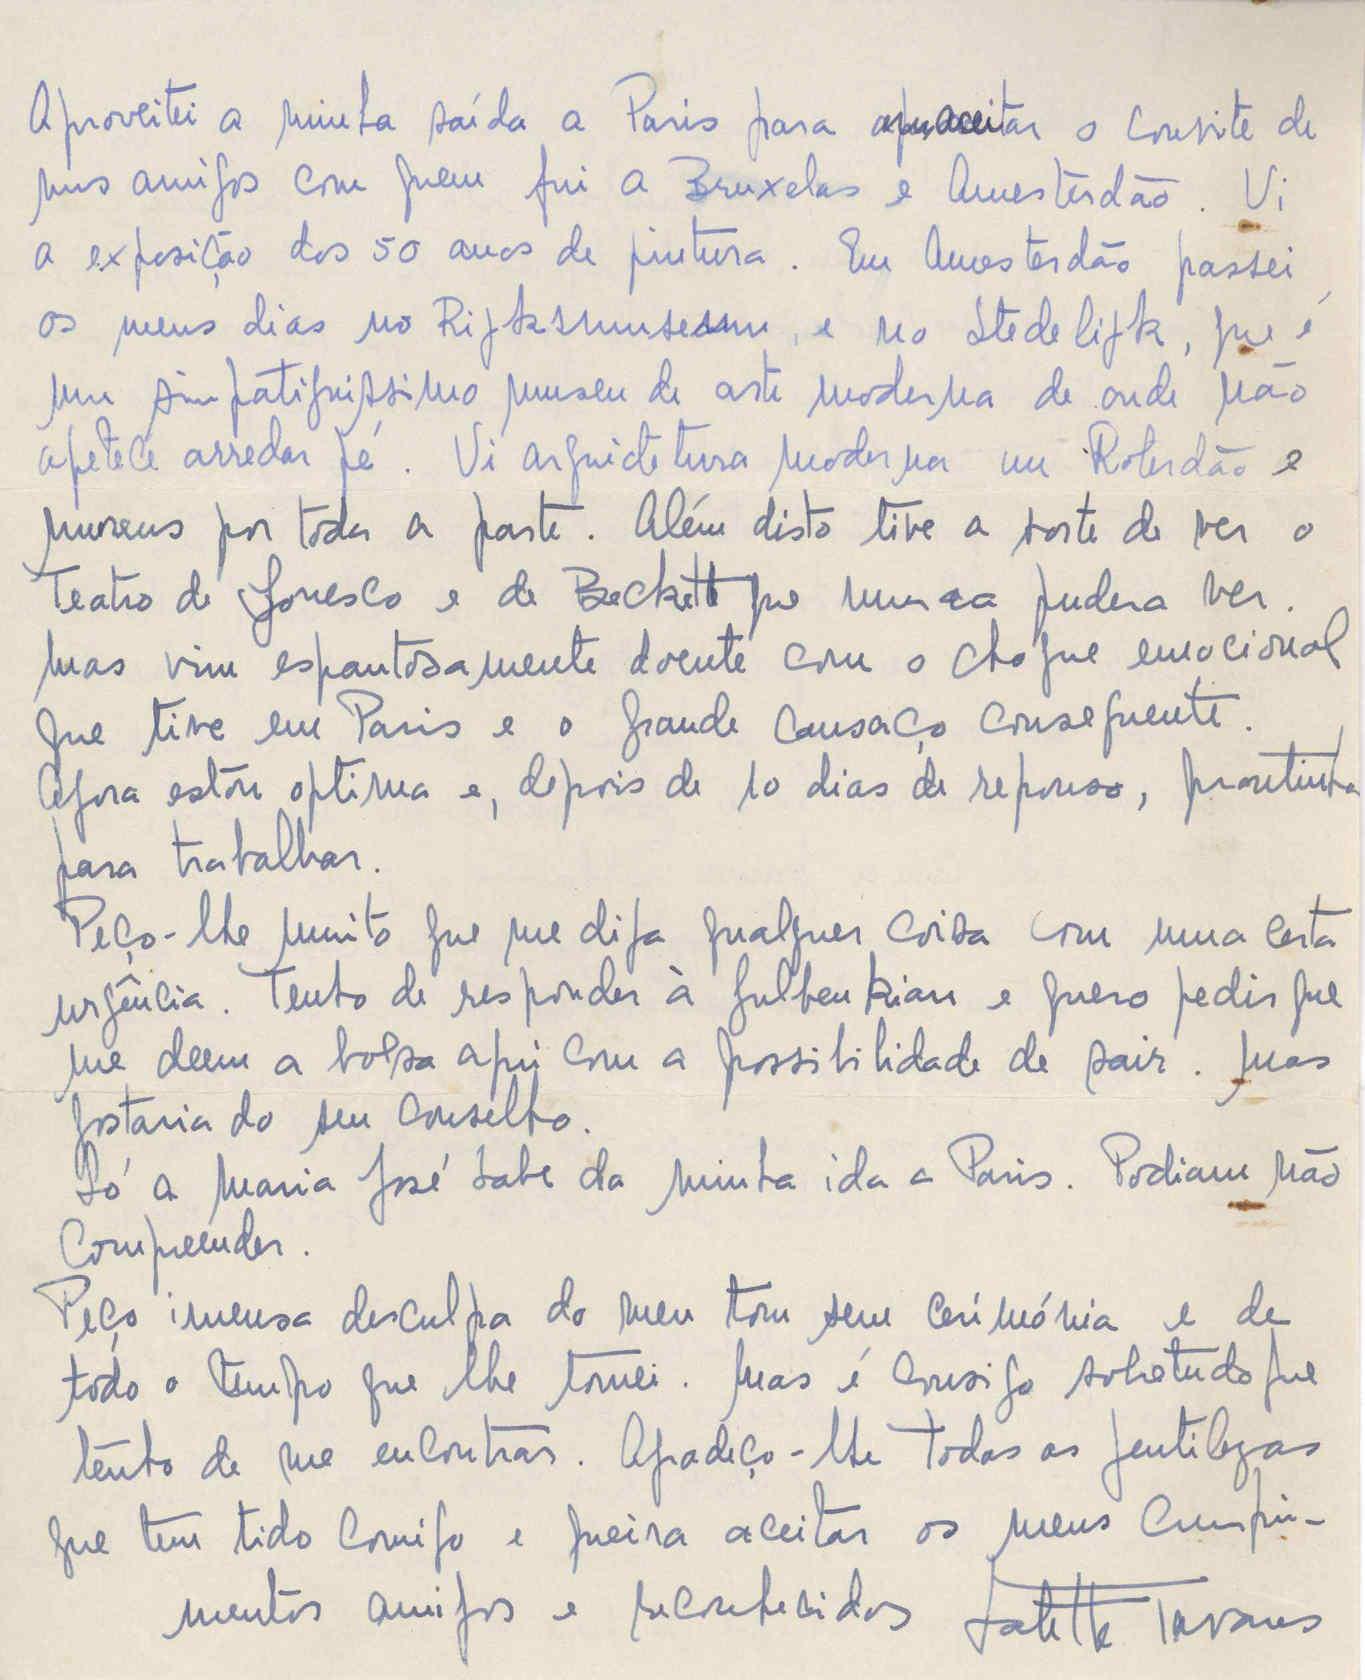 Aproveitei a minha saída a Paris para aceitar o convite de
uns amigos com quem fui a Bruxelas e Amesterdão. Vi
a exposição dos 50 anos de pintura. Em Amesterdão passei
os meus dias no Rijksmuseum, e no Stedelijk, que é
um simpatiquissimo museu de arte moderna de onde não
apetece arredar pé. Vi arquitetura moderna em Roterdão e
museus por toda a parte. Além disto tive a sorte de ver o
Teatro de Ionesco e de Beckett que nunca pudera ver.
Mas vim espantosamente doente com o choque emocional
que tive em Paris e o grande cansaço consequente.
Agora estou optima e, depois de 10 dias de repouso, prontinha
para trabalhar.
Peço-lhe muito que me diga qualquer coisa com uma certa
urgência. Tenho de responder à Gulbenkian e quero pedir que
me deem a bolsa aqui com a possibilidade de sair. Mas
gostaria do seu conselho.
Só a Maria José sabe da minha ida a Paris. Podiam não
compreender.
Peço imensa desculpa do meu tom sem cerimónia e de
todo o tempo que lhe tomei. Mas é consigo sobretudo que
tenho de me encontrar. Agradeço-lhe todas as gentilezas
que tem tido comigo e queira aceitar os meus cumpri-
mentos amigos e reconhecidos Salette Tavares